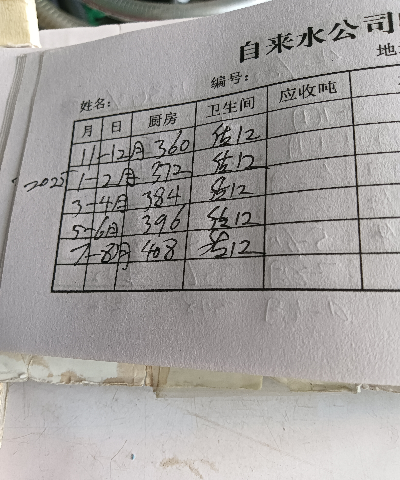 自来水公司
地
姓名： 编号：
月 日 厨房 卫生间 应收吨
11-12月 360 估12
2025 1-2月 372 估12
3-4月 384 估12
5-6月 396 估12
7-8月 408 估12